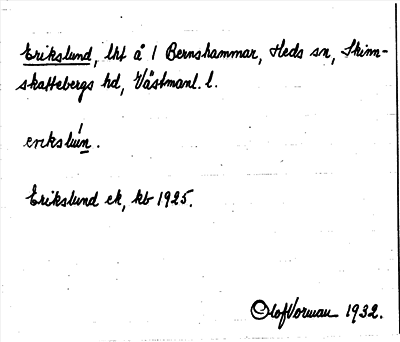 Erikslund, lht å 1 Bernshammar, Heds sn, Skinn-
skattebergs hd, Västmanl. l.
erikslun.
Erikslund ek, kb 1925.
Olof Vorman 1932.